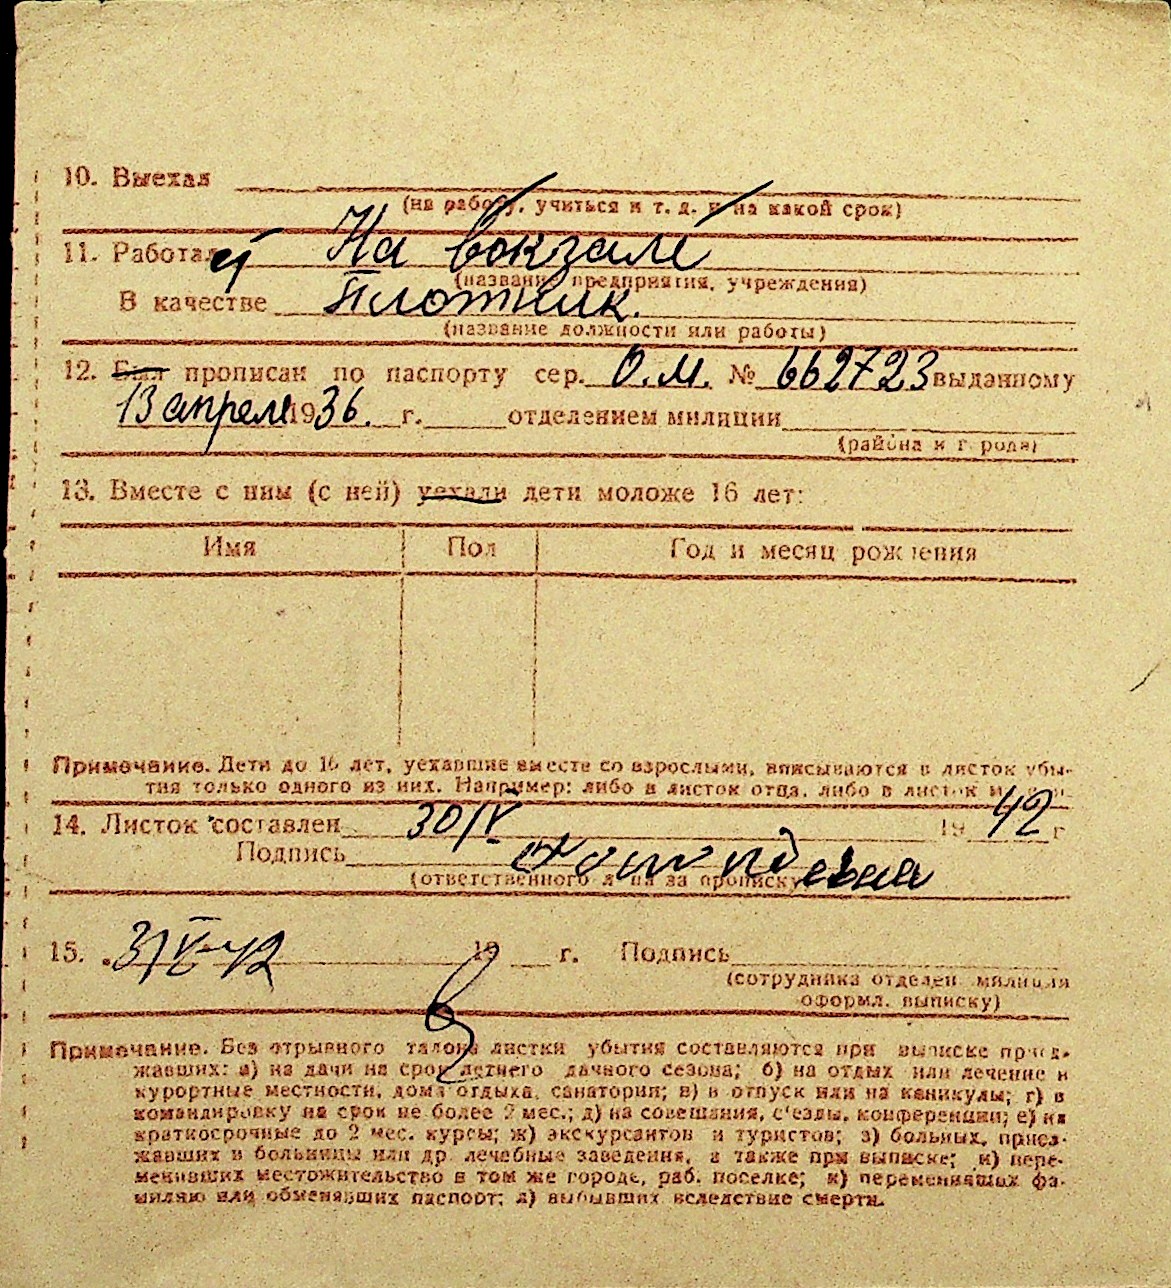 10. Выехал
(на работу, учиться и т. д. и на какой срок)
11. Работает На вокзале
(название предприятия, учреждения)
В качестве Плотник.
(название должности или работы)
12. Был прописан по паспорту сер. О.М. № 662723 выданному
13 апреля 1936. г. отделением милиции
(района и города)
13. Вместе с ним (с ней) уехали дети моложе 16 лет:
Имя Пол Год и месяц рождения
Примечание. Дети до 16 лет, уехавшие вместе со взрослыми, вписываются в листок убы-
тия только одного из них. Например: либо в листок отца, либо в листок
14. Листок составлен 30/V 1942 г
Подпись
(ответственного лица за прописку)
15. 31/V-42 19 г. Подпись
(сотрудника отделен. милиции
оформл. выписку)
Примечание. Без отрывного талона листки убытия составляются при выписке приез-
жавших: а) на дачи на срок летнего дачного сезона; б) на отдых или лечение в
курортные местности, дома отдыха, санатории; в) в отпуск или на каникулы; г) в
командировку на срок не более 2 мес.; д) на совещания, с'езды, конференции; е) на
краткосрочные до 2 мес. курсы; ж) экскурсантов и туристов; з) больных, приез-
жавших в больницы или др. лечебные заведения, а также при выписке; и) пере-
менивших местожительство в том же городе, раб. поселке; к) переменивших фа-
милию или обменявших паспорт; л) выбывших вследствие смерти.